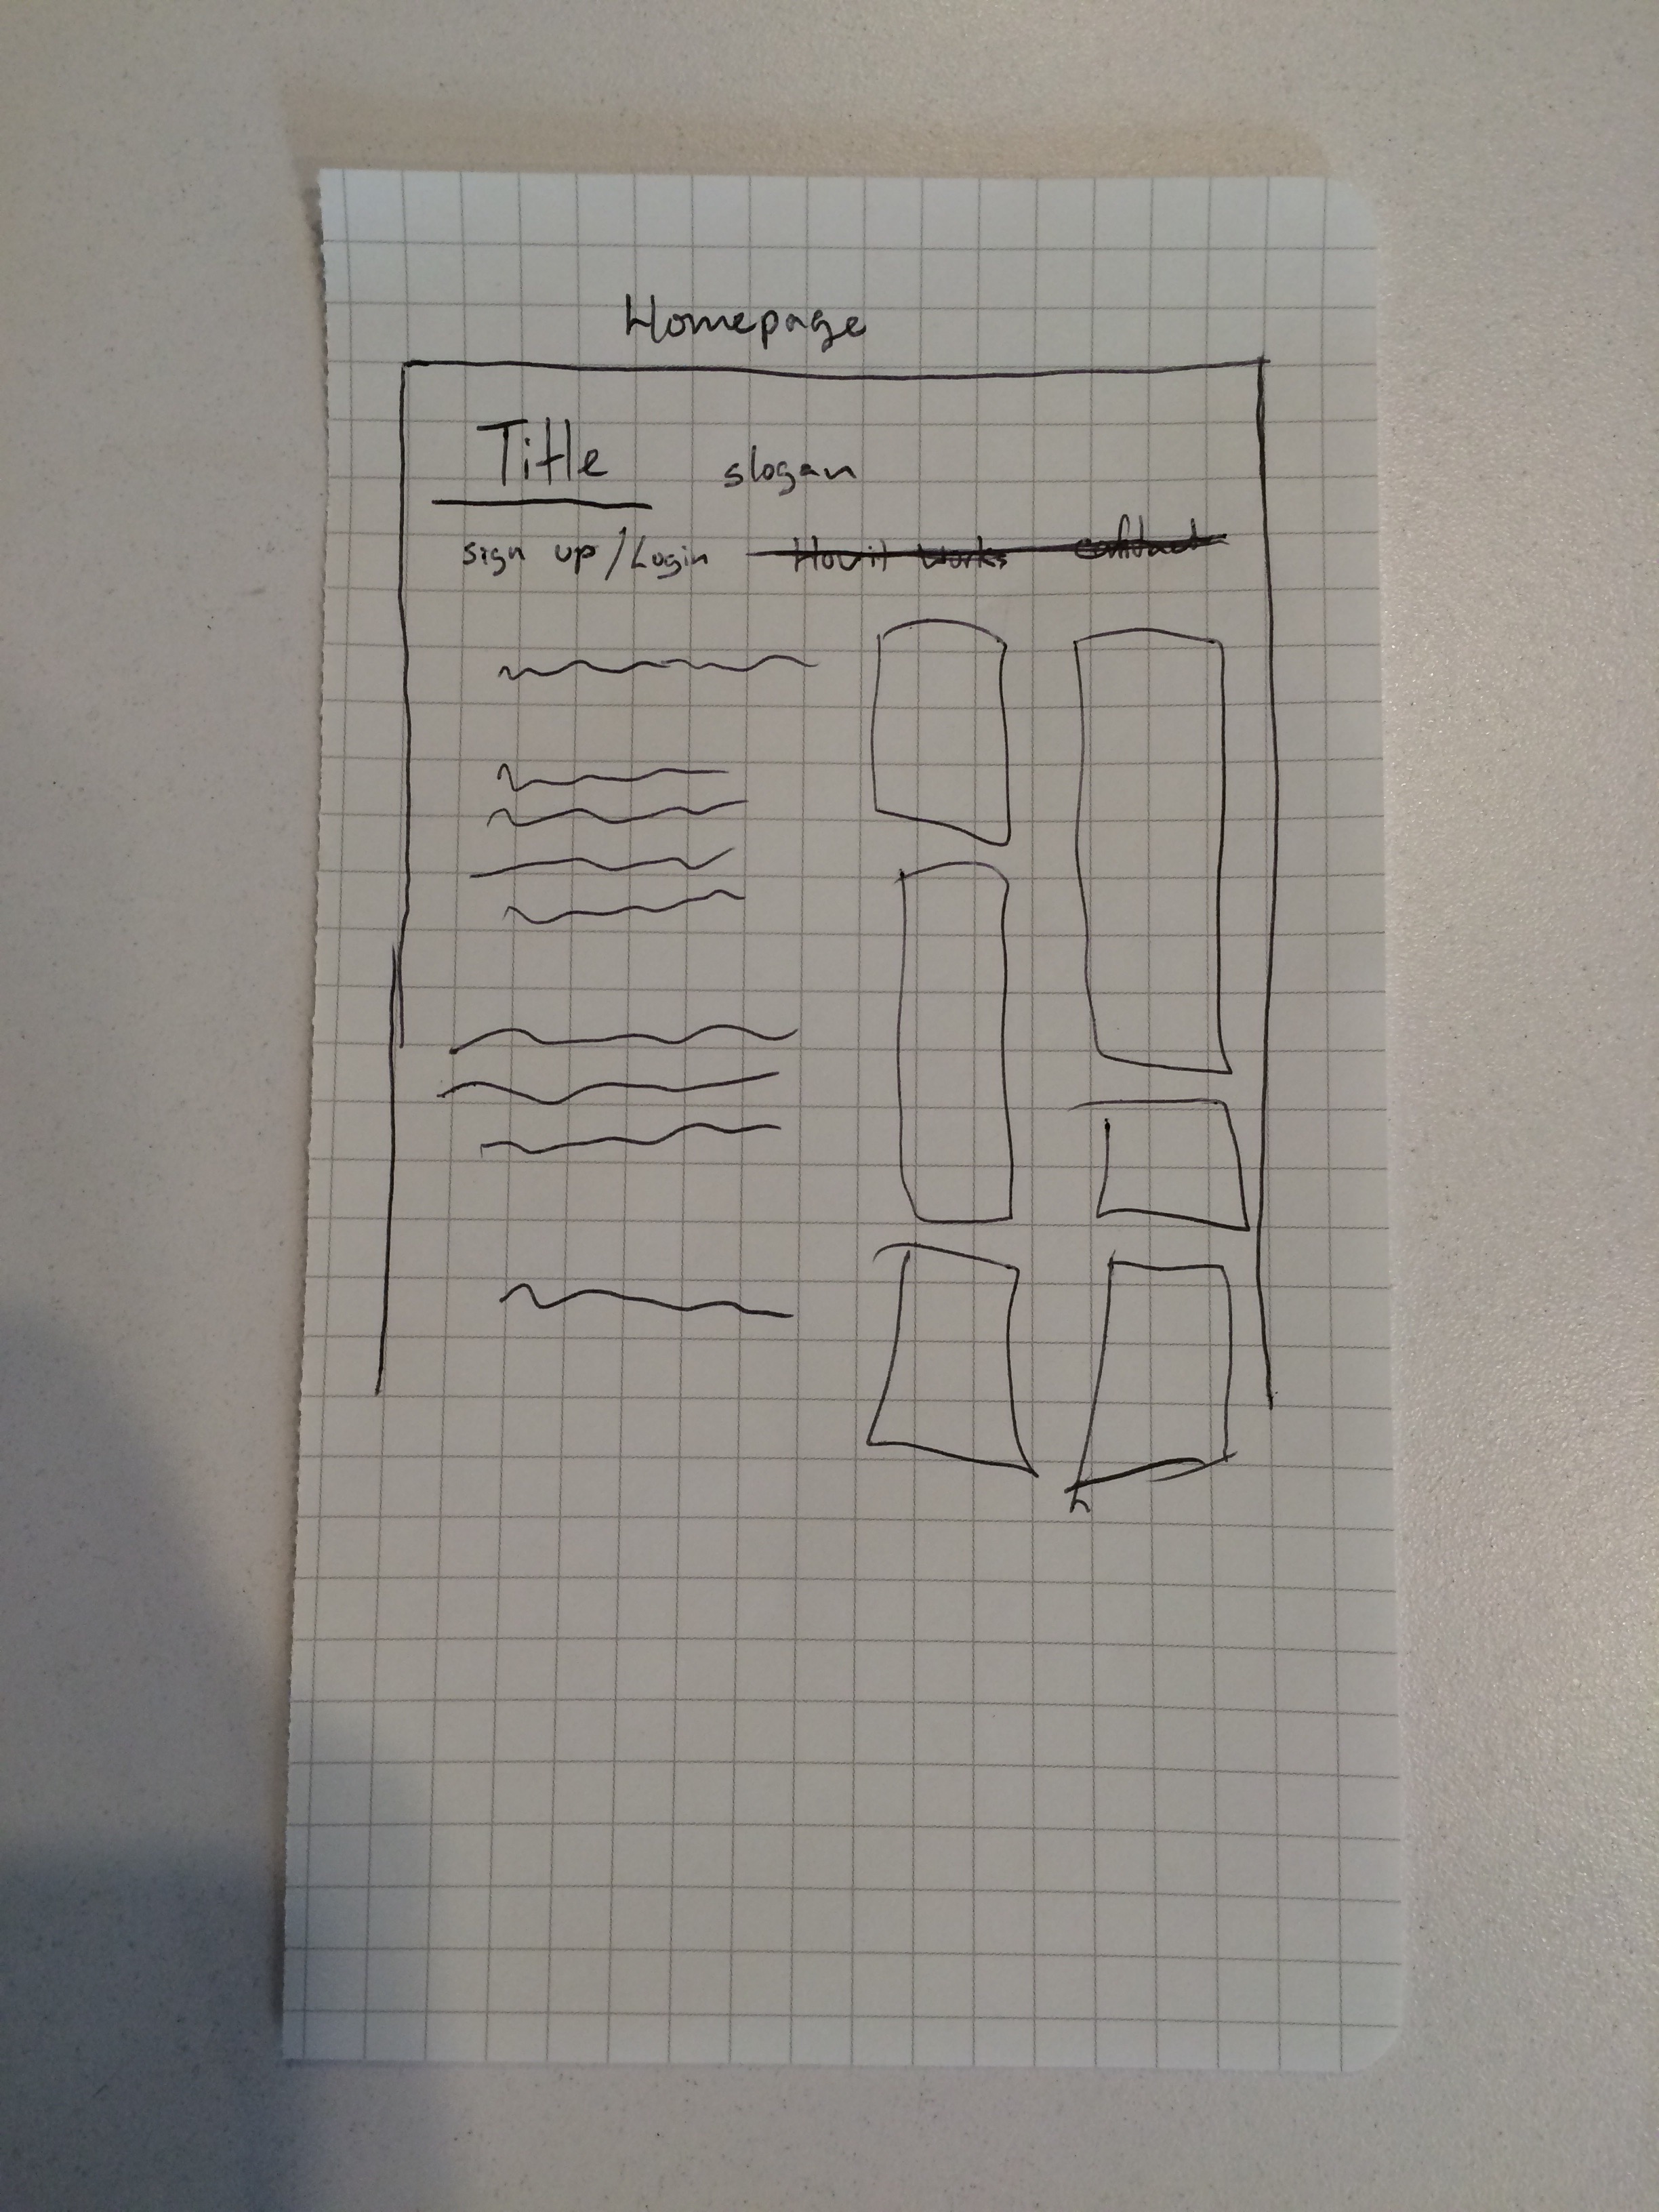 Homepage
Title slogan
sign up / Login How it works contact